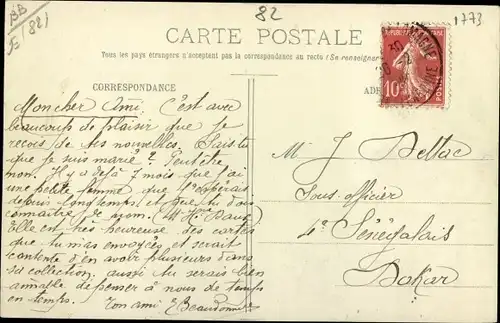 BB
82
82
1773
CARTE POSTALE
Tous les pays étrangers n'acceptent pas la correspondance au recto (Se renseigner
CORRESPONDANCE
POSTES
10
Mon cher Ami, C'est avec
beaucoup de plaisir que je
reçois de tes nouvelles. Sais tu
que je suis marié ? Peut être
non. Il y a déjà 7 mois que j'ai
une petite femme que j'espérais
depuis longtemps et que tu dois
connaître de nom.
Elle est très heureuse des cartes
que tu m'as envoyées et serait
contente d'en avoir plusieurs dans
sa collection. aussi tu serais bien
aimable de penser à nous de temps
en temps. Ton ami
M J
Sous-officier
4e Sénégalais
Dakar